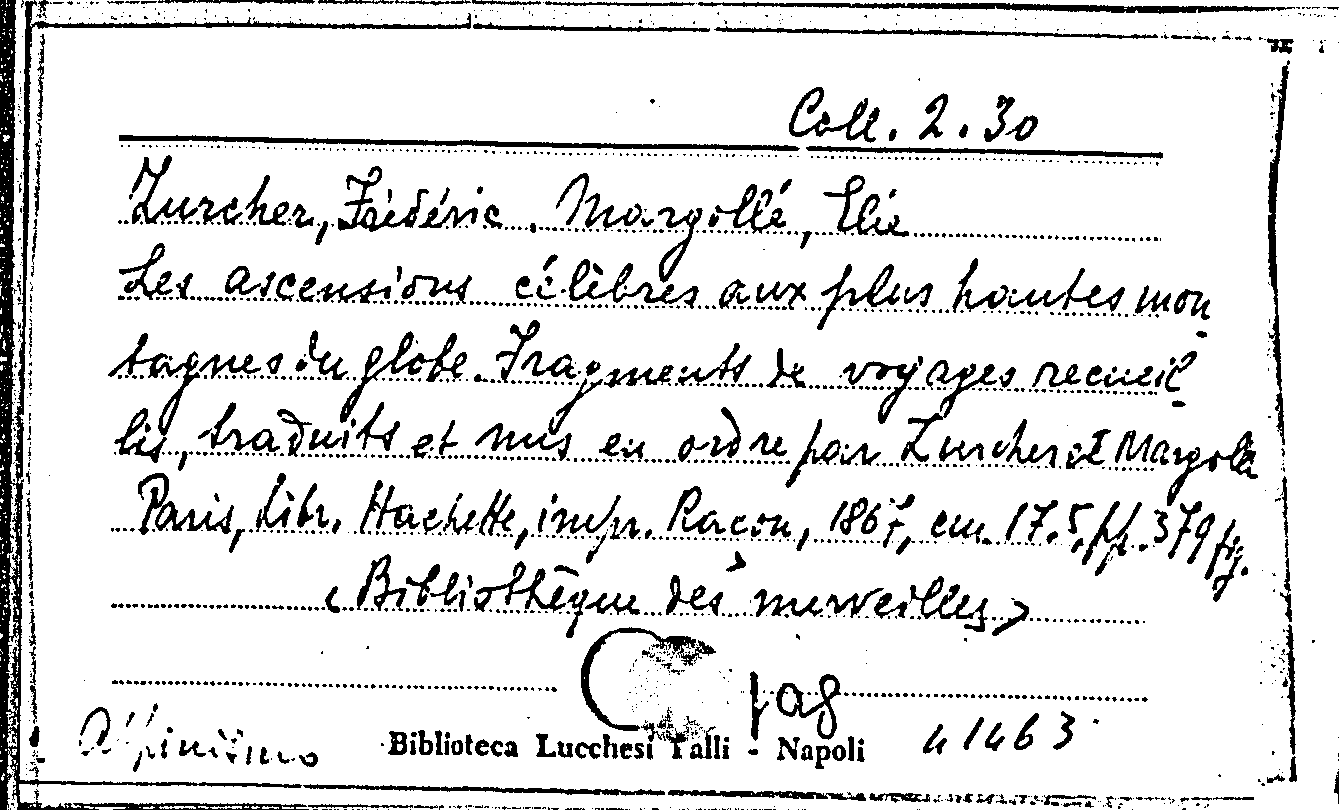 Coll. 2.30
Zurcher, Frédéric. Margollé, Elie
Les ascensions célèbres aux plus hautes mon-
tagnes du globe. Fragments de voyages recueil-
lis, traduits et mis en ordre par Zurcher et Margollé
Paris, Libr. Hachette, impr. Racon, 1867, cm. 17.5, pp. 379 fig.
(Bibliothèque des merveilles)
Alpinismo
Biblioteca Lucchesi Palli - Napoli
41463